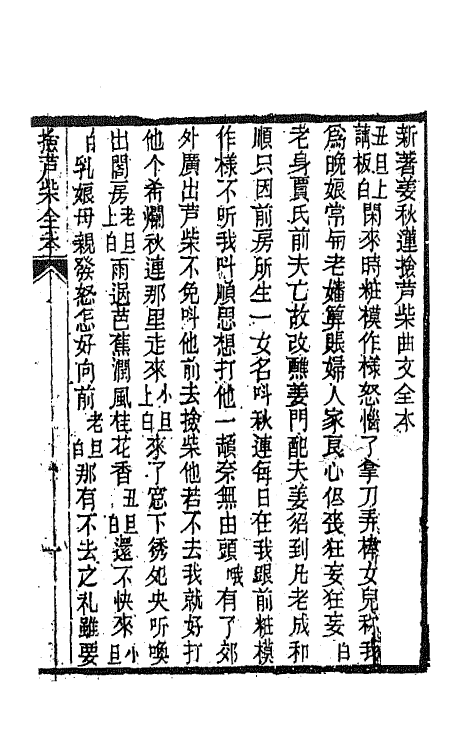 新著姜秋蓮撿芦柴曲文全本
丑旦上講板白閑來時粧模作樣怒惱了拿刀弄棒女兒称我
爲晚娘常与老嬏算賬婦人家良心但丧狂妄狂妄白
老身賈氏前夫亡故改醮姜門配夫姜紹到凡老成和
順只因前房所生一女名呌秋連每日在我跟前粧模
作樣不听我呌順思想打他一頓奈無由頭哦有了郊
外廣出芦柴不免呌他前去撿柴他若不去我就好打
他个希爛秋連那里走來小旦上白來了窓下綉鸳央听喚
出閨房老旦上白雨過芭蕉潤風桂花香丑旦白還不快來小旦
白乳娘母親發怒怎好向前老旦白那有不去之礼雖要
撿芦柴全本